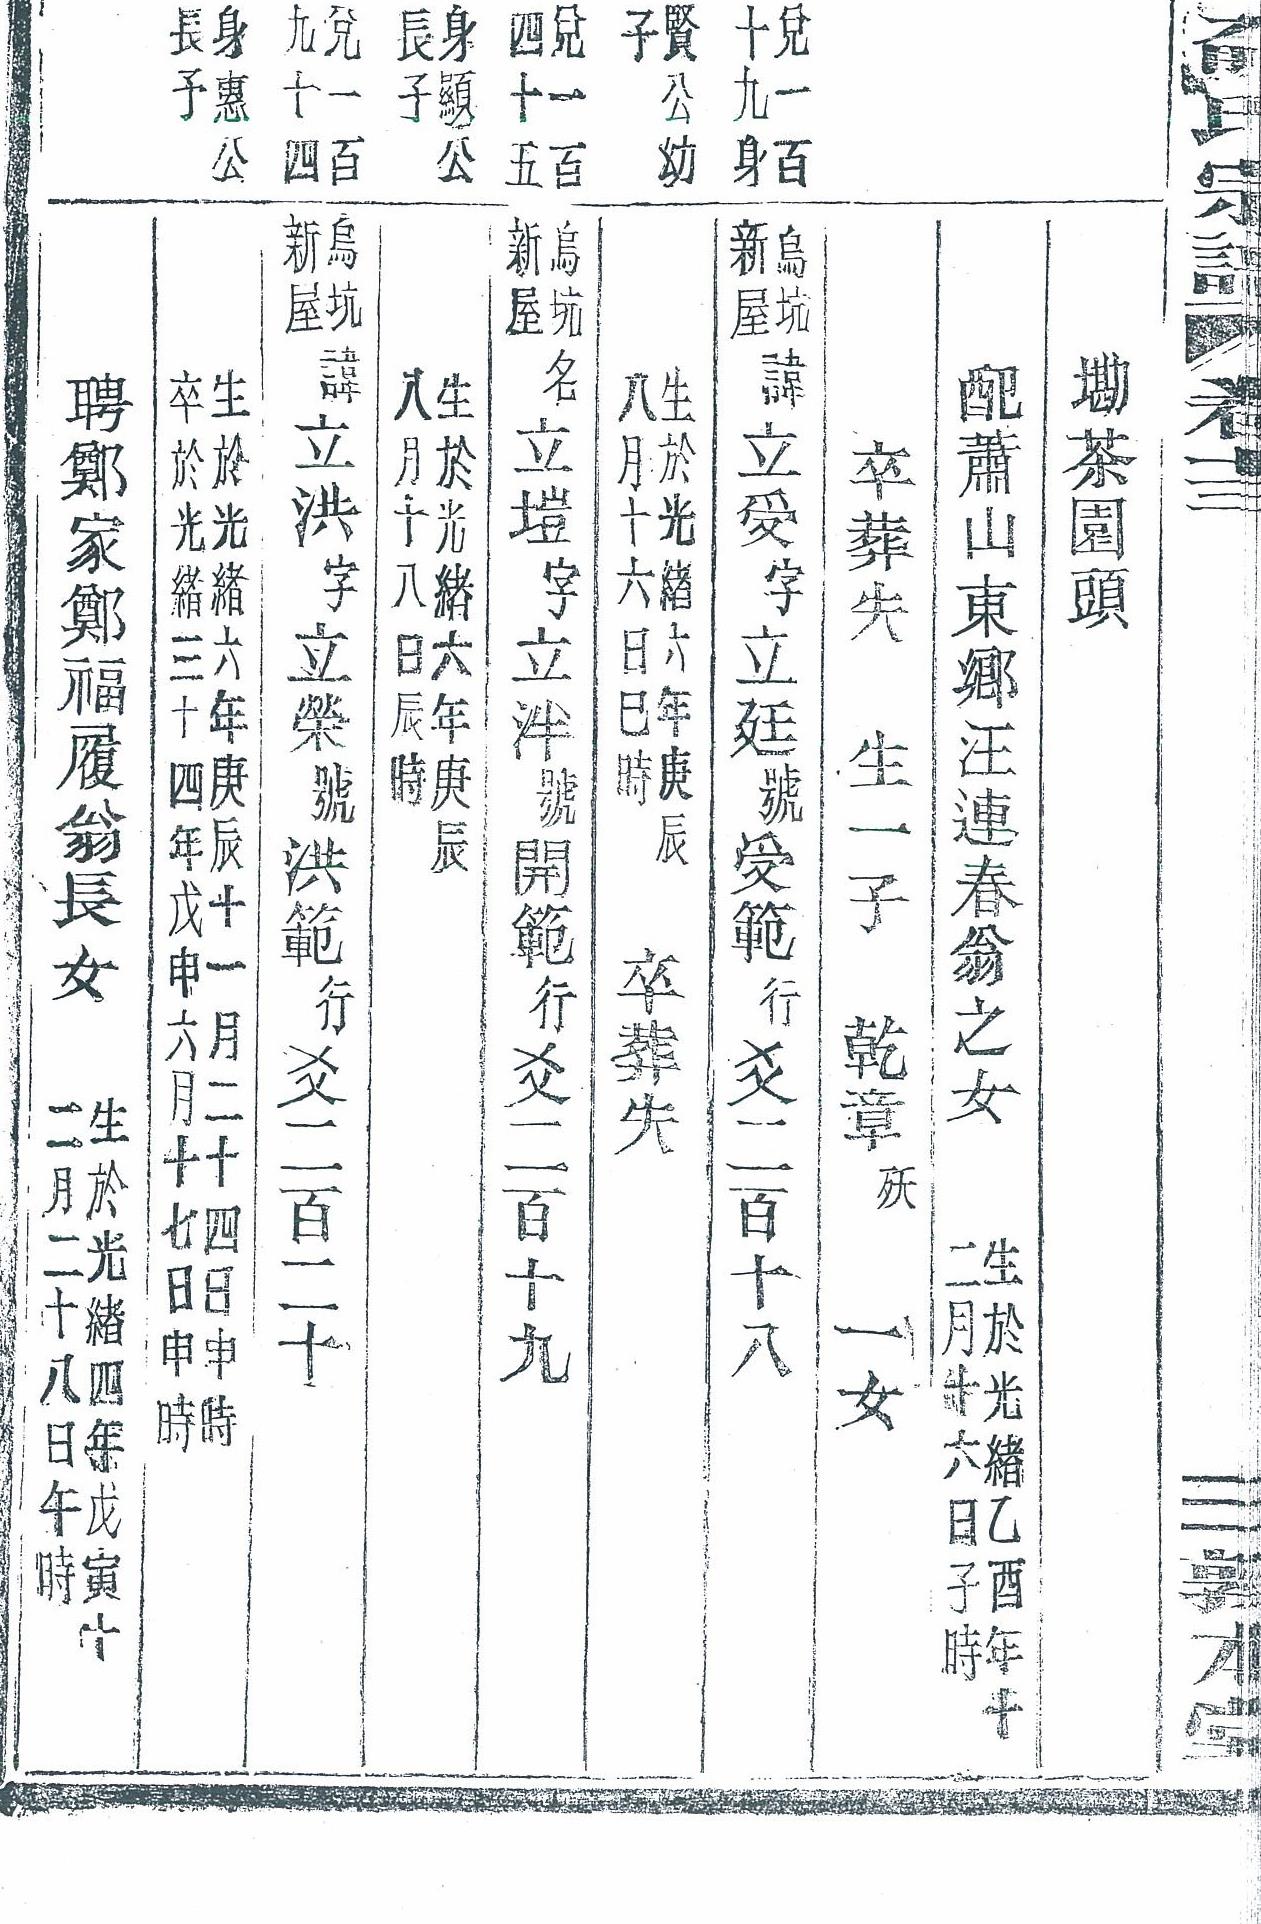 宗譜 卷三 三 敦本堂
墈茶園頭
配蕭山東鄉汪連春翁之女 生於光緒乙酉年十
二月廿六日子時
卒葬失 生一子 乾章 殀 一女
兌一百
十九身
烏坑
新屋
諱立受字立廷號受範行爻二百十八
賢公幼
子
生於光緒六年庚辰
八月十六日巳時
卒葬失
兌一百
四十五
烏坑
新屋
名立塏字立泮號開範行爻二百十九
身顯公
長子
生於光緒六年庚辰
八月十八日辰時
兌一百
九十四
烏坑
新屋
諱立洪字立榮號洪範行爻二百二十
身惠公
長子
生於光緒六年庚辰十一月二十四日申時
卒於光緒三十四年戊申六月十七日申時
聘鄭家鄭福履翁長女 生於光緒四年戊寅十
二月二十八日午時